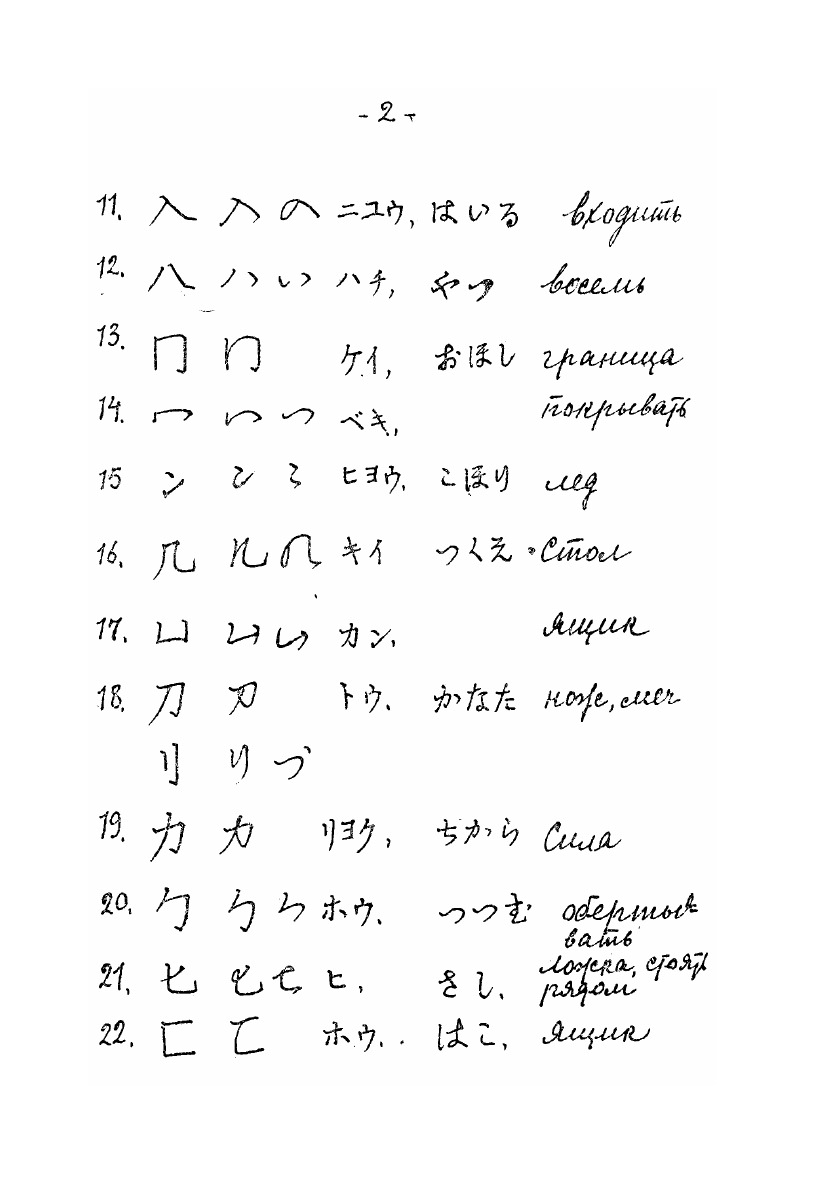 - 2 -
11. 入 入 の ニユウ, はいる входить
12. 八 ハ い ハチ, やつ восемь
13. 冂 冂 ケイ, おほし граница
14. 冖 冖 つ ベキ, покрывать
15 ン ン ミ ヒヨウ. こほり лед
16. 几 几 几 キイ つくえ • Стол
17. 凵 凵 い カン. ящик
18. 刀 刀 トウ. かなた нож, меч
刂 リ づ
19. 力 力 リヨク, ちから Сила
20. 勹 勹 ㇉ ホウ. つつむ обёрты-
вать
21. 匕 匕 匕 ヒ. さし. ложка, стоять
рядом
22. 匚 匚 ホウ. . はこ. ящик